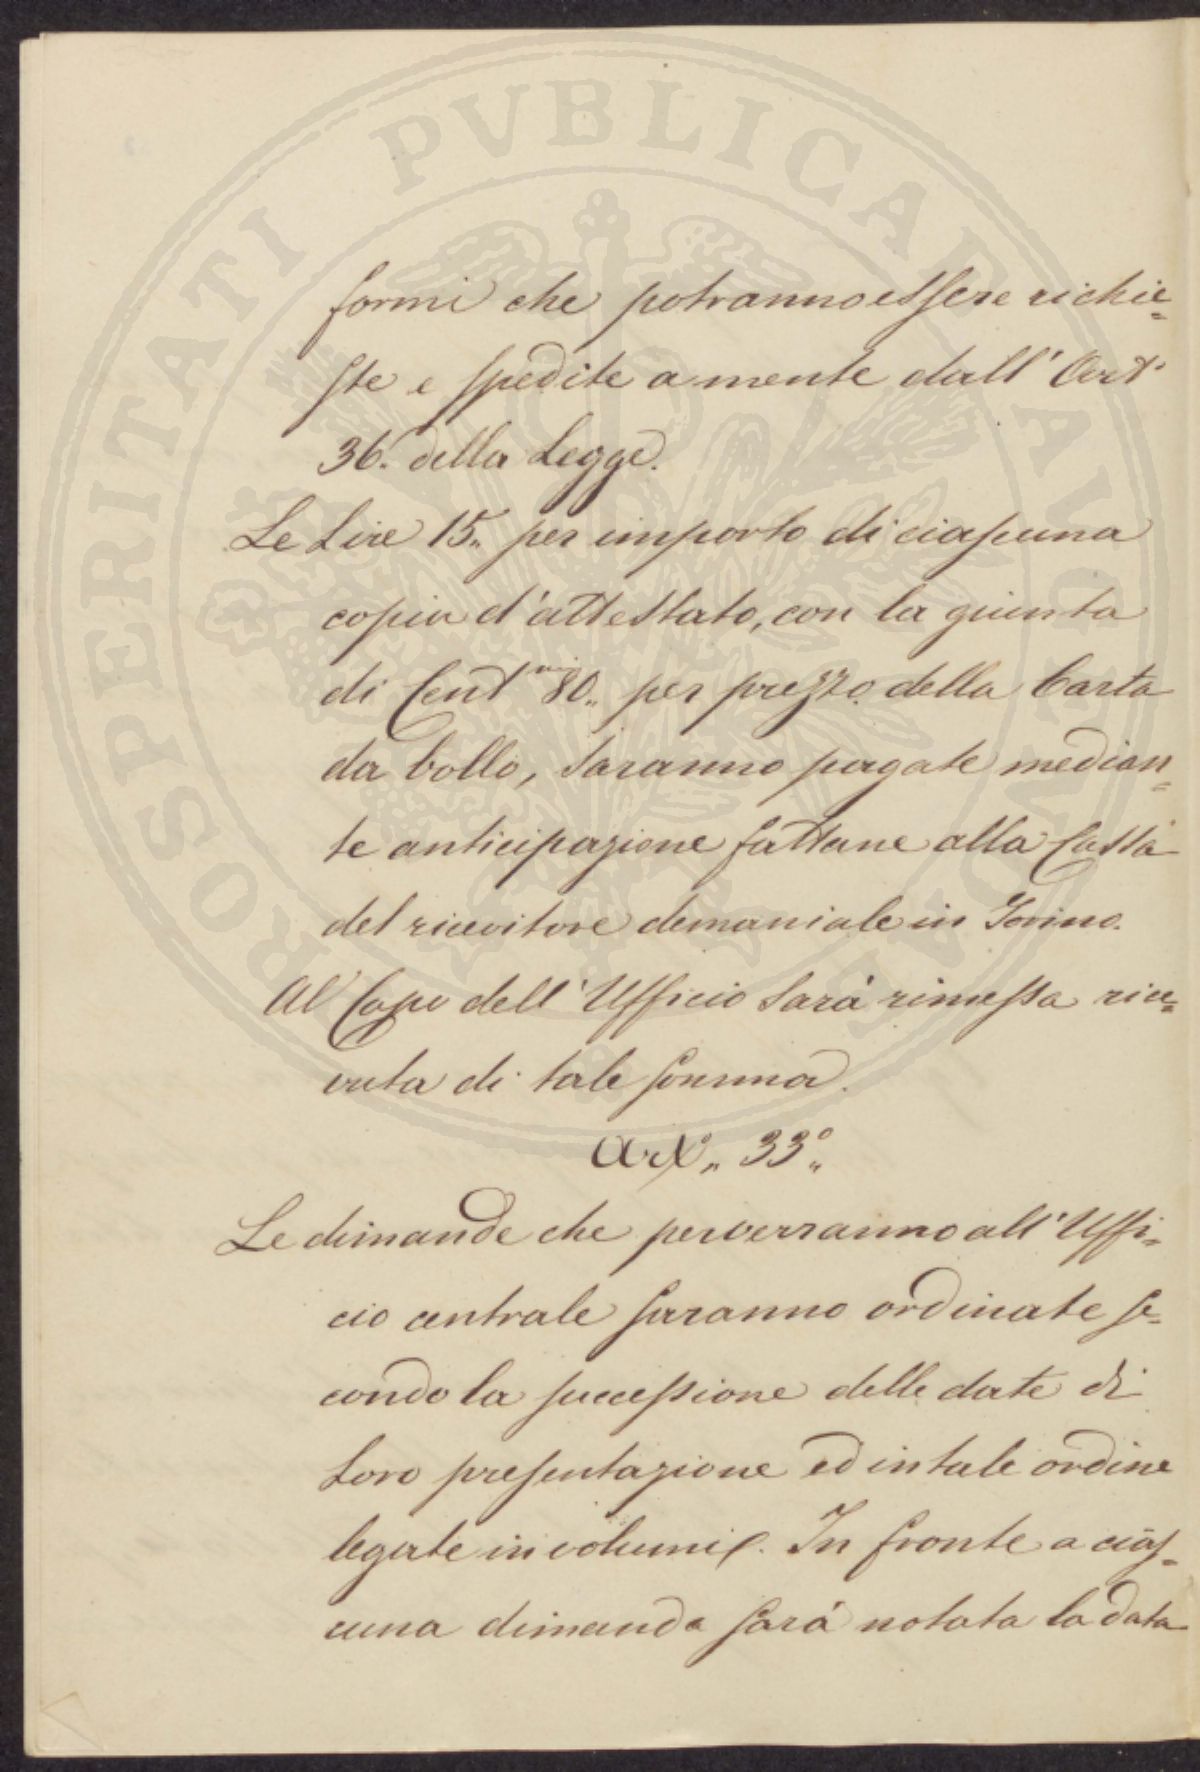 PROSPERITATI PVBLICAE AVGENDAE
formi che potranno essere richie=
ste e spedite a mente dall' Art.
36. della Legge.
Le Lire 15„ per importo di ciascuna
copia d'attestato, con la giunta
di Cent.mi 80„ per prezzo della Carta
da bollo, saranno pagate median=
te anticipazione fattane alla Cassa
del ricevitore demaniale in Torino.
Al Capo dell' Ufficio sarà rimessa rice=
vuta di tale somma.
Art.„ 33°„
Le dimande che perverranno all' Uffi=
cio centrale saranno ordinate se=
condo la successione delle date di
loro presentazione ed in tale ordine
legate in volumi. In fronte a cias=
cuna dimanda sarà notata la data